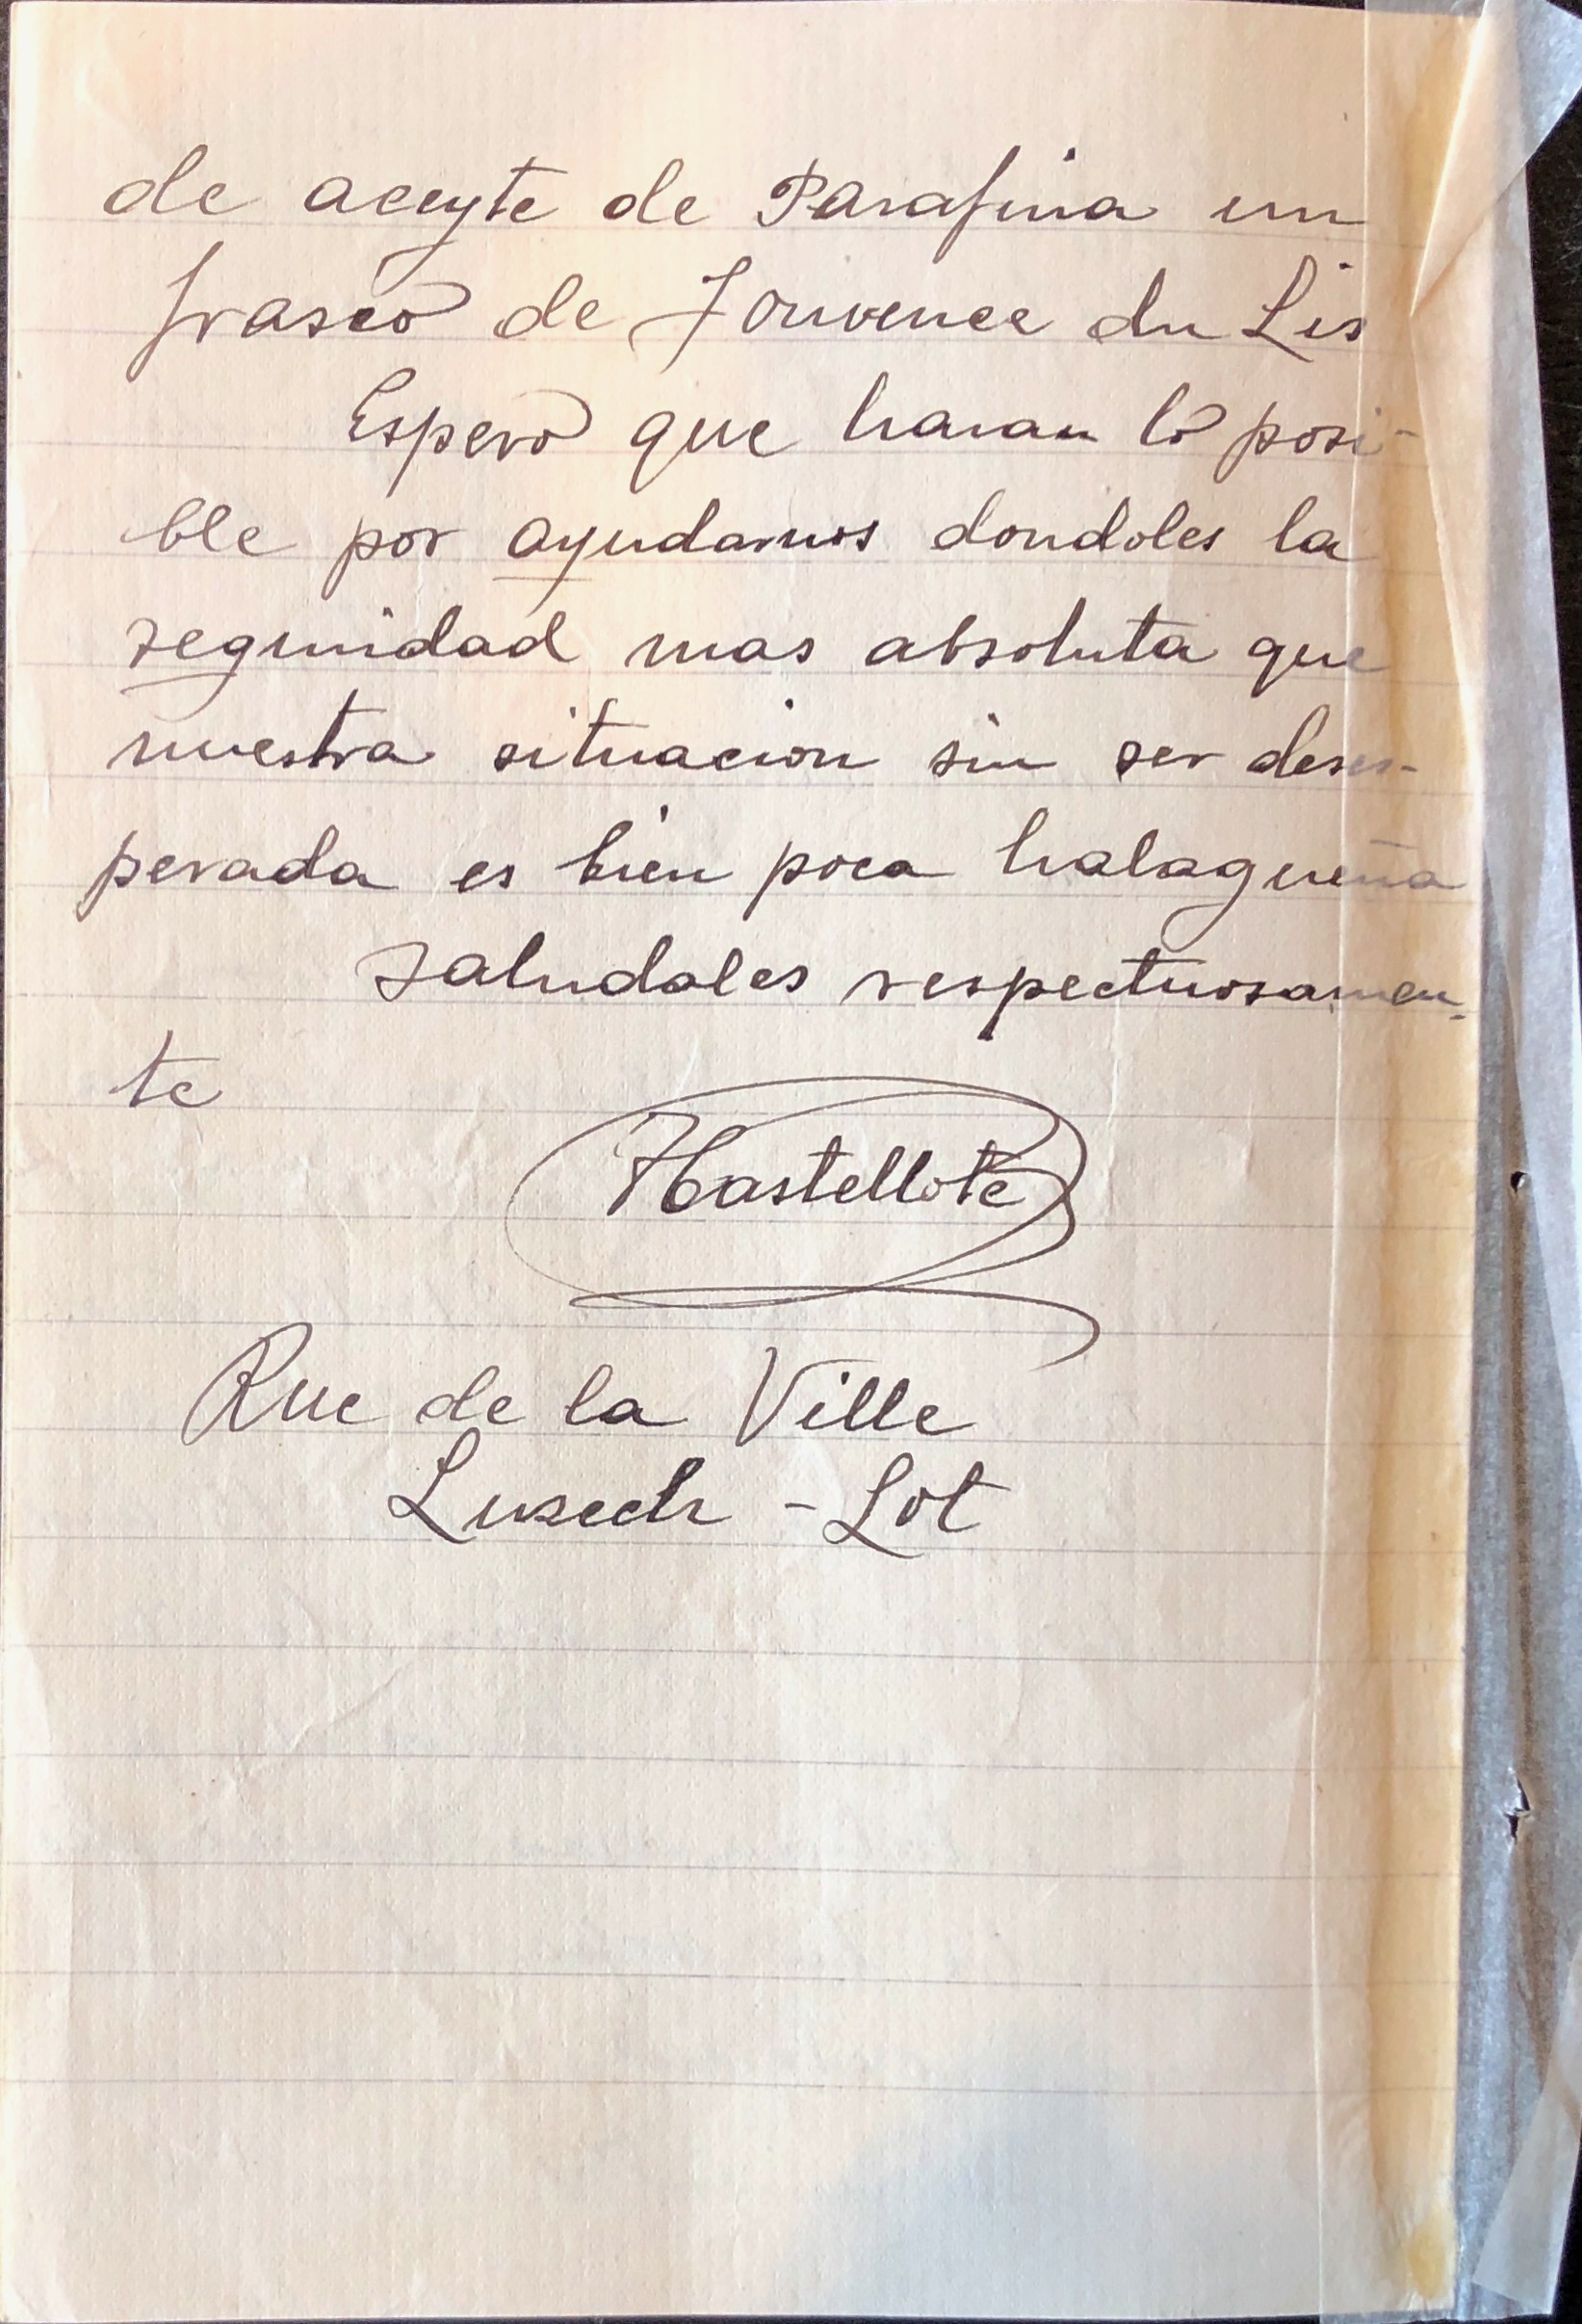 de aceyte de Parafina un
frasco de Jouvence du Lis
Espero que haran lo posi-
ble por ayudarnos dondoles la
seguridad mas absoluta que
nuestra situacion sin ser deses-
perada es bien poca halagueña
saludales respectuosamen-
te
Rue de la Ville
Luzech - Lot